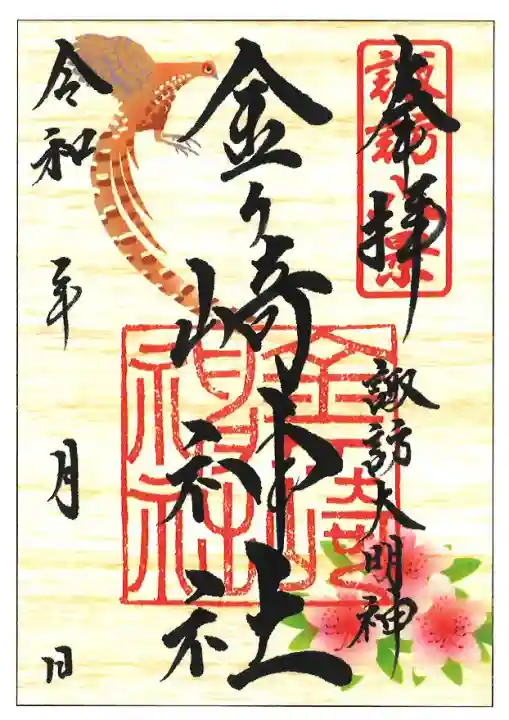 奉拝
諏訪大明神
金ヶ崎神社
令和 年 月 日
金ヶ崎神社